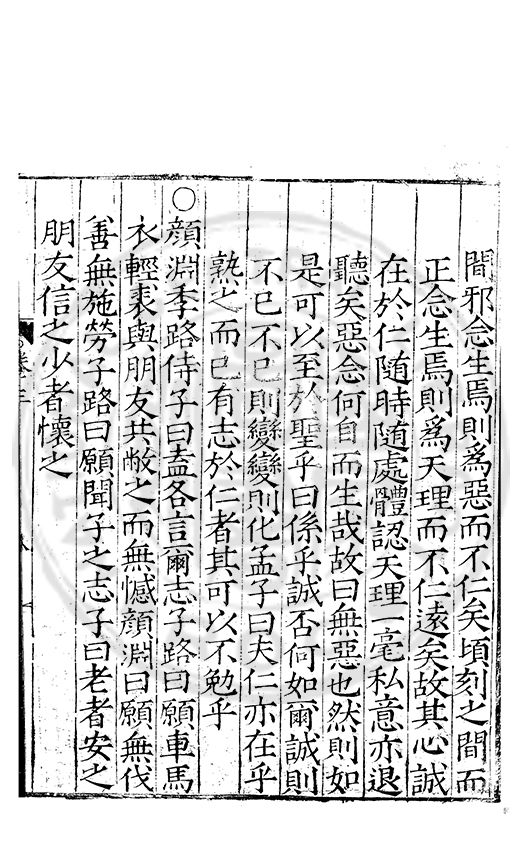 間邪念生焉則爲惡而不仁矣頃刻之間而
正念生焉則爲天理而不仁遠矣故其心誠
在於仁隨時隨處體認天理一毫私意亦退
聽矣惡念何自而生哉故曰無惡也然則如
是可以至於聖乎曰係乎誠否何如爾誠則
不已不已則變變則化孟子曰夫仁亦在乎
熟之而已有志於仁者其可以不勉乎
○顔淵季路侍子曰盍各言爾志子路曰願車馬
衣輕裘與朋友共敝之而無憾顔淵曰願無伐
善無施勞子路曰願聞子之志子曰老者安之
朋友信之少者懷之
卷三